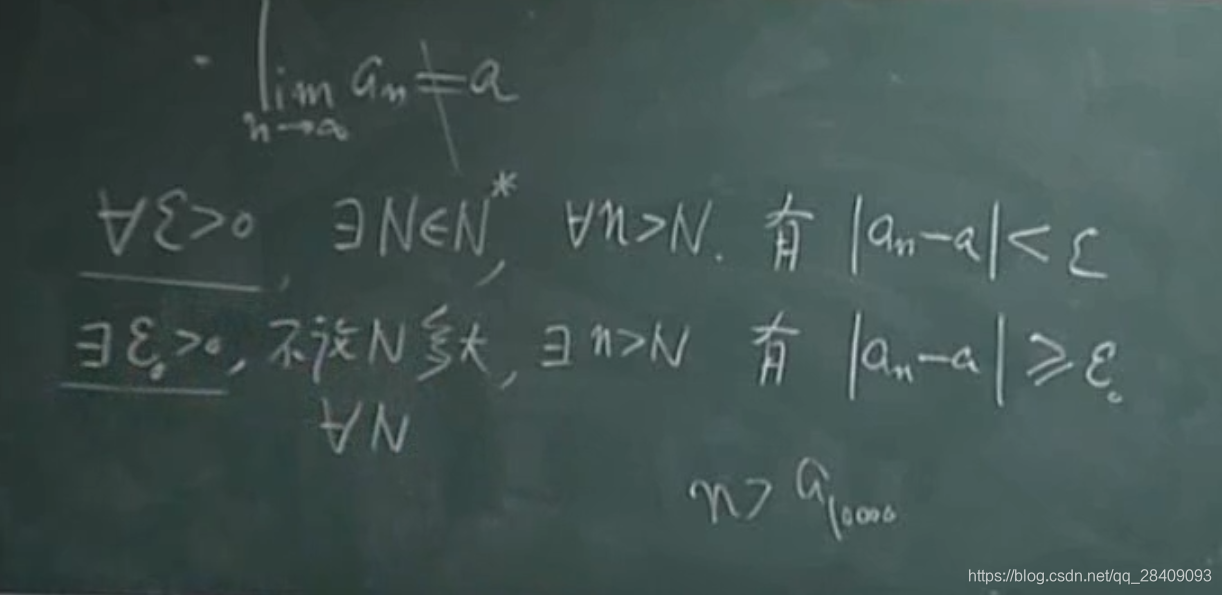 lim aₙ ≠ a
n→∞
∀ε>0, ∃N∈N*, ∀n>N. 有 |aₙ-a|<ε
∃ε₀>0, 不论N多大, ∃n>N 有 |aₙ-a|≥ε₀
∀N
n> a₁₀₀₀₀
https://blog.csdn.net/qq_28409093